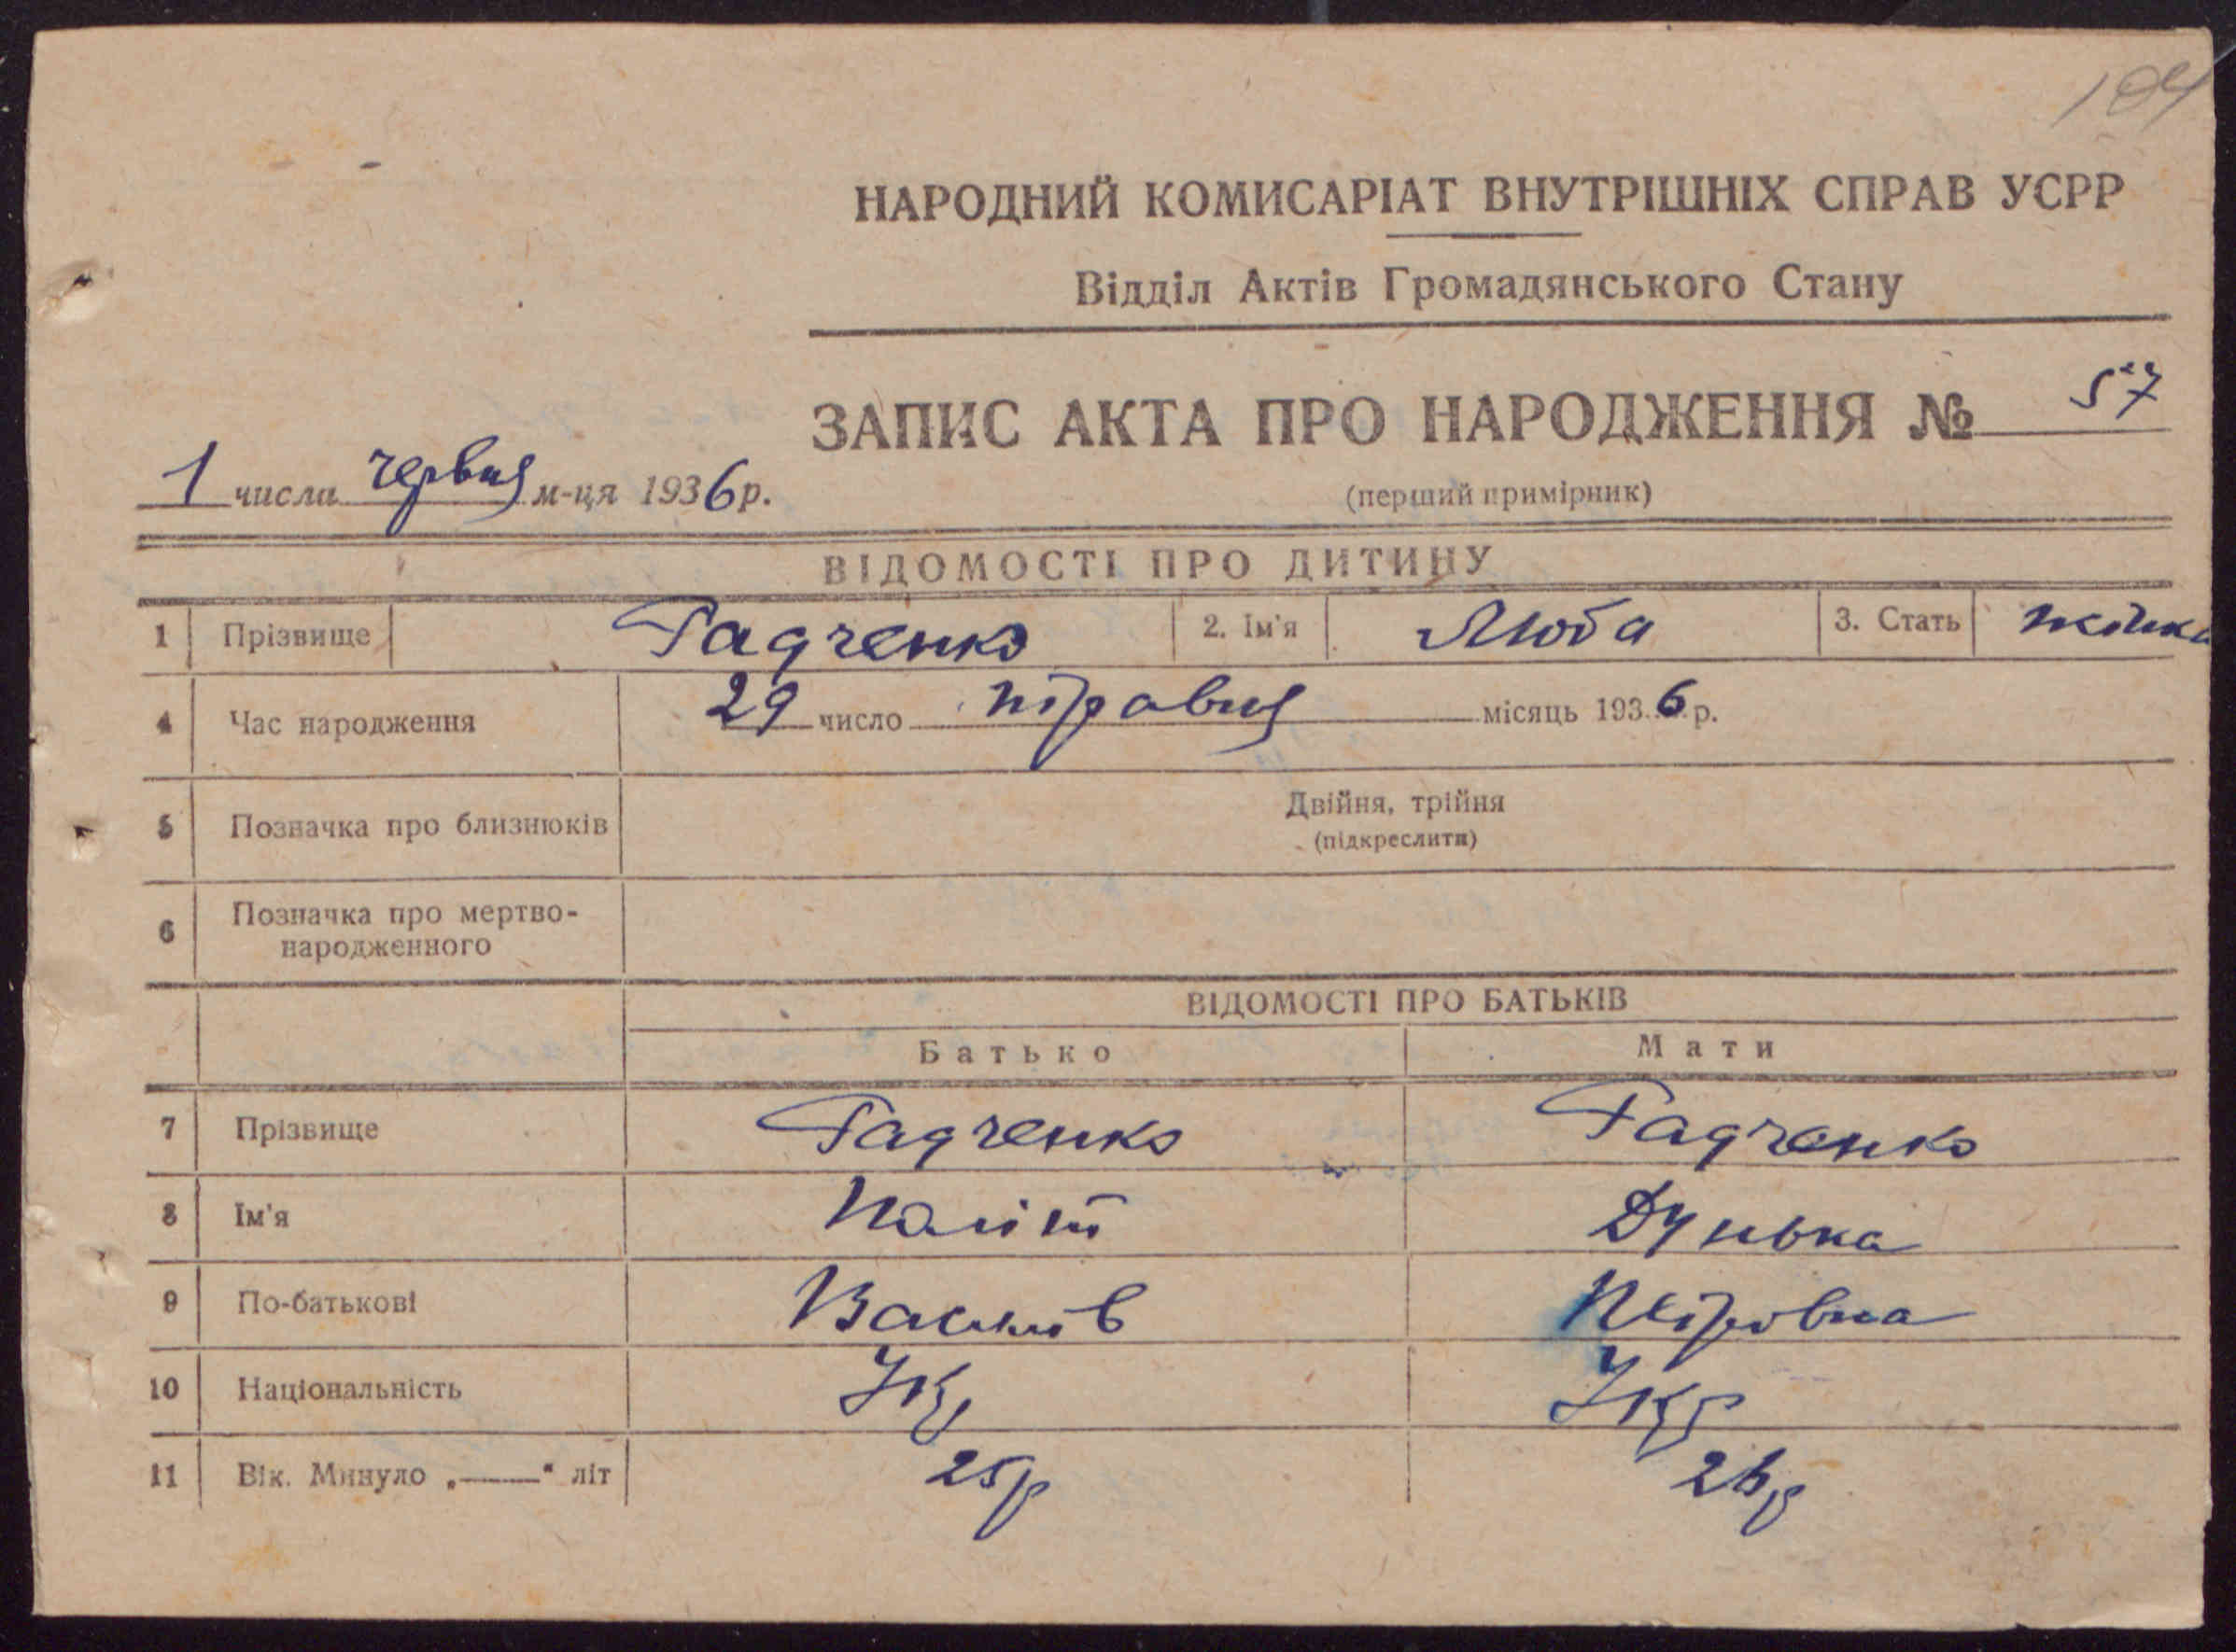 104
НАРОДНИЙ КОМИСАРІАТ ВНУТРІШНІХ СПРАВ УСРР
Відділ Актів Громадянського Стану
ЗАПИС АКТА ПРО НАРОДЖЕННЯ № 57
1 числа червня м-ця 1936 р.
(перший примірник)
ВІДОМОСТІ ПРО ДИТИНУ
1 Прізвище Гадченко 2. Ім'я Люба 3. Стать жінка
4 Час народження 29 число травня місяць 1936 р.
5 Позначка про близнюків Двійня, трійня
(підкреслити)
6 Позначка про мертво-
народженного
ВІДОМОСТІ ПРО БАТЬКІВ
Батько Мати
7 Прізвище Гадченко Гадченко
8 Ім'я Дунька
9 По-батькові Василів Петровна
10 Національність Укр Укр
11 Вік. Минуло „——“ літ 25р 26р